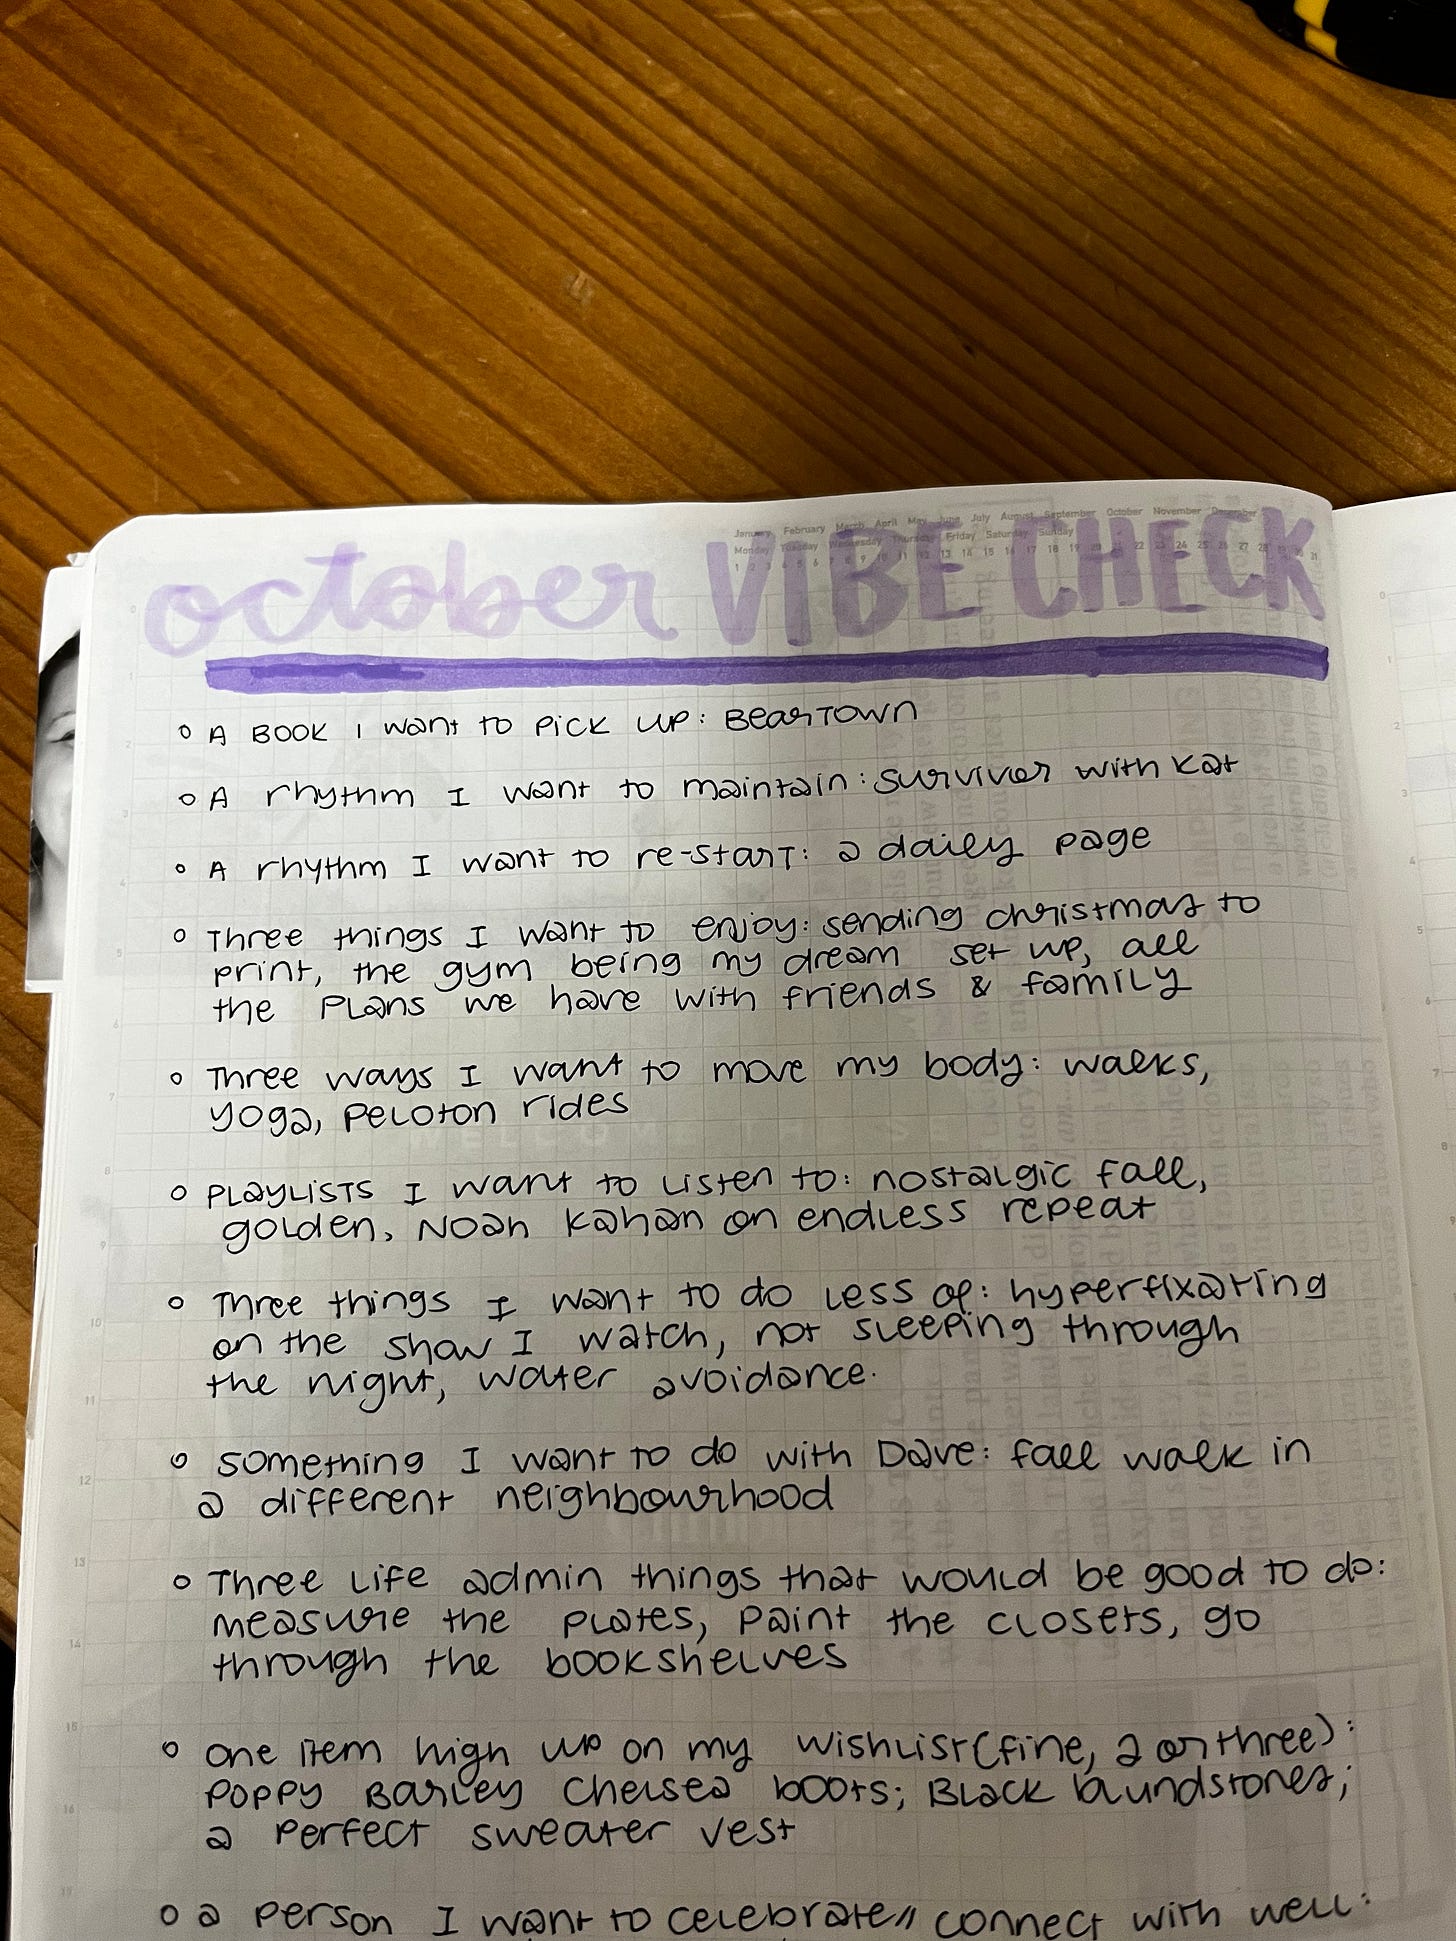 January February March April May June July August September October November December
Monday Tuesday Wednesday Thursday Friday Saturday Sunday
october VIBE CHECK
o A BOOK I want to PICK UP: BearTOWN
o A rhythm I want to maintain: survivor with Kat
o A rhythm I want to re-start: a daily page
o Three things I want to enjoy: sending christmas to
print, the gym being my dream set up, all
the plans we have with friends & family
o Three ways I want to move my body: walks,
yoga, peloton rides
o PLAYLISTS I want to listen to: nostalgic fall,
golden, Noah Kahan on endless repeat
o Three things I want to do less of: hyperfixating
on the show I watch, not sleeping through
the night, water avoidance.
o something I want to do with Dave: fall walk in
a different neighbourhood
o Three life admin things that would be good to do:
measure the plates, paint the closets, go
through the bookshelves
o one item high up on my wishlist (fine, 2 or three):
POPPY Barley Chelsea boots; Black blundstones;
a perfect sweater vest
o a person I want to celebrate // connect with well: